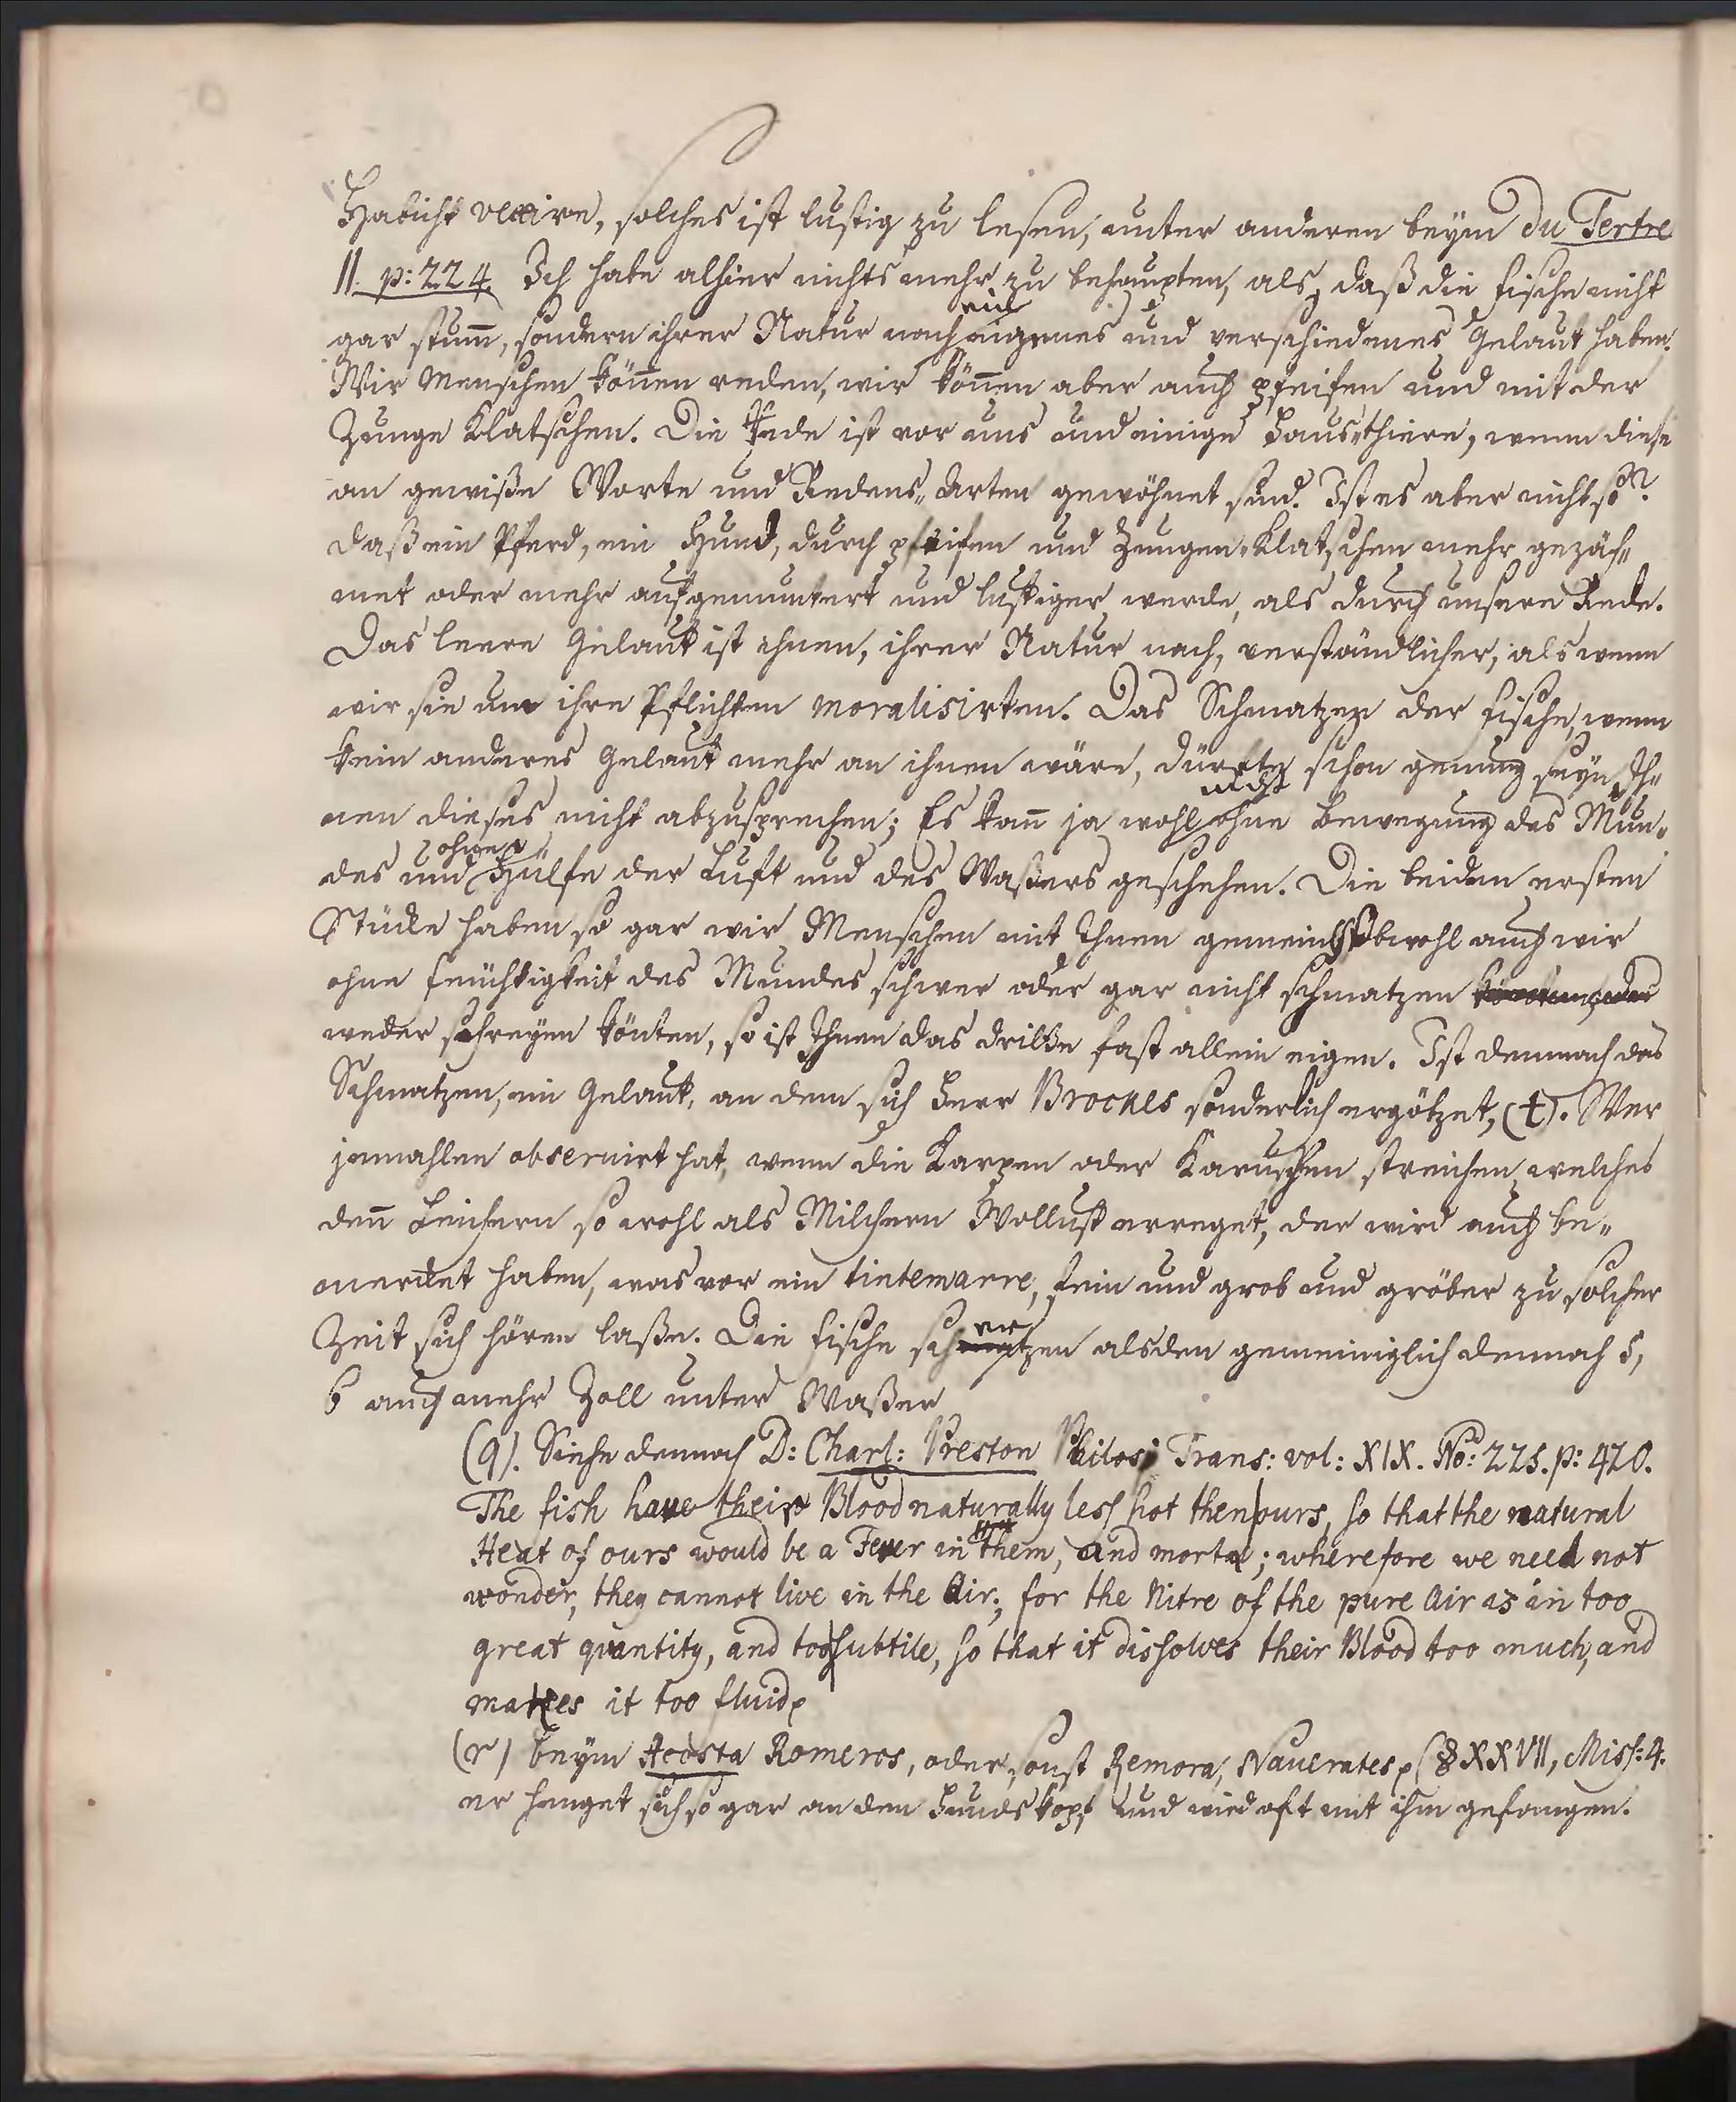 Habicht vexire, solches ist lustig zu lesen, unter anderen beym du Tertre
II. p: 224. Ich habe alhier nichts mehr zu behaupten, als, daß die fische nicht
ein
gar stum̅, sondern ihrer Natur nach eigenes und verschiedenes Gelaut haben.
Wir Menschen kön̅en reden, wir kön̅en aber auch pfeifen und mit der
Zunge Klatschen. Die Rede ist vor uns und einige Haus„thiere, wenn diese
an gewiße Worte und Redens„Arten gewöhnet sind. Ist es aber nicht so?
daß ein Pferd, ein Hund, durch pfeifen und Zungen„Klatschen mehr gezäh„
met oder mehr aufgemuntert und lustiger werde, als durch unsere Rede.
Das leere Gelaut ist ihnen, ihrer Natur nach, verständlicher, als wenn
wir sie um ihre Pflichten moralisirten. Das Schmatzen der fische, wenn
kein anderes Gelaut mehr an ihnen wäre, dürfte schon genung seyn, Ih„
nicht
nen dieses nicht abzusprechen; Es kan̅ ja wohl ohne Bewegung des Mun„
ohne
des und Hülfe der Luft und des Waßers geschehen. Die beiden ersten
Stücke haben so gar wir Menschen mit Ihnen gemein; Obwohl auch wir
ohne feuchtigkeit des Mundes schwer oder gar nicht schmatzen
weder schreyen könten, so ist Ihnen das dritte fast allein eigen. Ist demnach das
Schmatzen, ein Gelaut, an dem sich Herr Brockes sonderlich ergötzet, (t). Wer
jemahlen observirt hat, wenn die Karpen oder Karuschen streichen, welches
den̅ Leichern so wohl als Milchern Wollust erreget, der wird auch be„
merket haben, was vor ein tintemarre, fein und grob und gröber zu solcher
Zeit sich hören laße. Die fische schmatzen alsden gemeiniglich dennoch 5,
6 auch mehr Zoll unter Waßer
(q). Siehe dennoch D: Charl: Preston Philos: Trans: vol: XIX. No: 225. p: 420.
The fish have their Blood naturally less hot then ours, so that the natural
Heat of ours would be a Fever in them, and mortal; wherefore we need not
wonder, they cannot live in the Air; for the Nitre of the pure Air is in too
great quantity, and too subtile, so that it dissolves their Blood too much, and
makes it too fluid
(r) beym Acosta Romeros, oder sonst Remora, Naucrates (§ XXVII, Miss: 4.
er henget sich so gar an den Hundskopf und wird oft mit ihm gefangen.